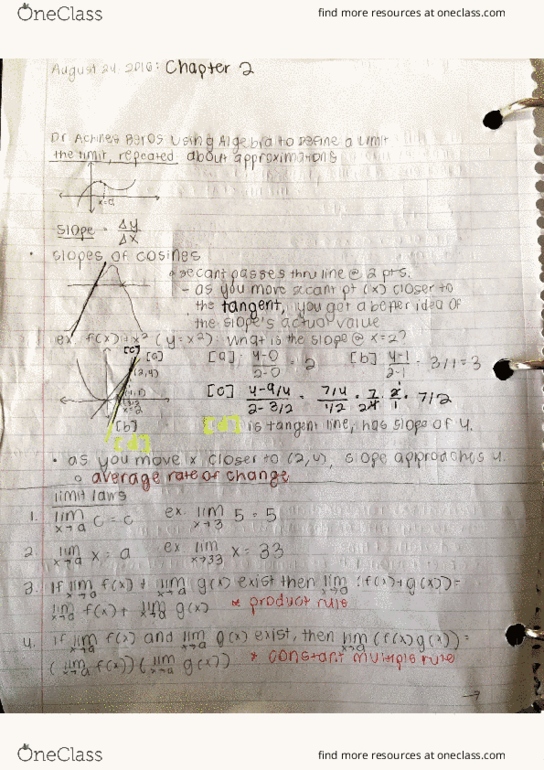 OneClass
find more resources at oneclass.com
August 24, 2016: Chapter 2
Using Algebra to Define a Limit
the limit, repeated, about approximations
x=a
Slope = Δy/Δx
• slopes of cosines
secant passes thru line @ 2 pts.
- as you move secant pt (x) closer to
the tangent, you get a better idea of
the slope's actual value
ex. f(x)=x² (y=x²). What is the slope @ x=2?
[c] [a] [a] 4-0/2-0 = 2 [b] 4-1/2-1 = 3/1 = 3
(2,4)
[c] 4-9/4 / 2-3/2 = 7/4 / 1/2 = 7/2
[b] [d] is tangent line, has slope of 4.
[d]
• as you move x closer to (2,4), slope approaches 4.
average rate of change
limit laws
1. lim x→a c = c ex. lim x→3 5 = 5
2. lim x→a x = a ex lim x→33 x = 33
3. If lim x→a f(x) + lim x→a g(x) exist then lim x→a (f(x)+g(x)) =
lim x→a f(x) + lim x→a g(x) * product rule
4. if lim x→a f(x) and lim x→a g(x) exist, then lim x→a (f(x)g(x)) =
(lim x→a f(x))(lim x→a g(x)) * constant multiple rule
→
OneClass
find more resources at oneclass.com